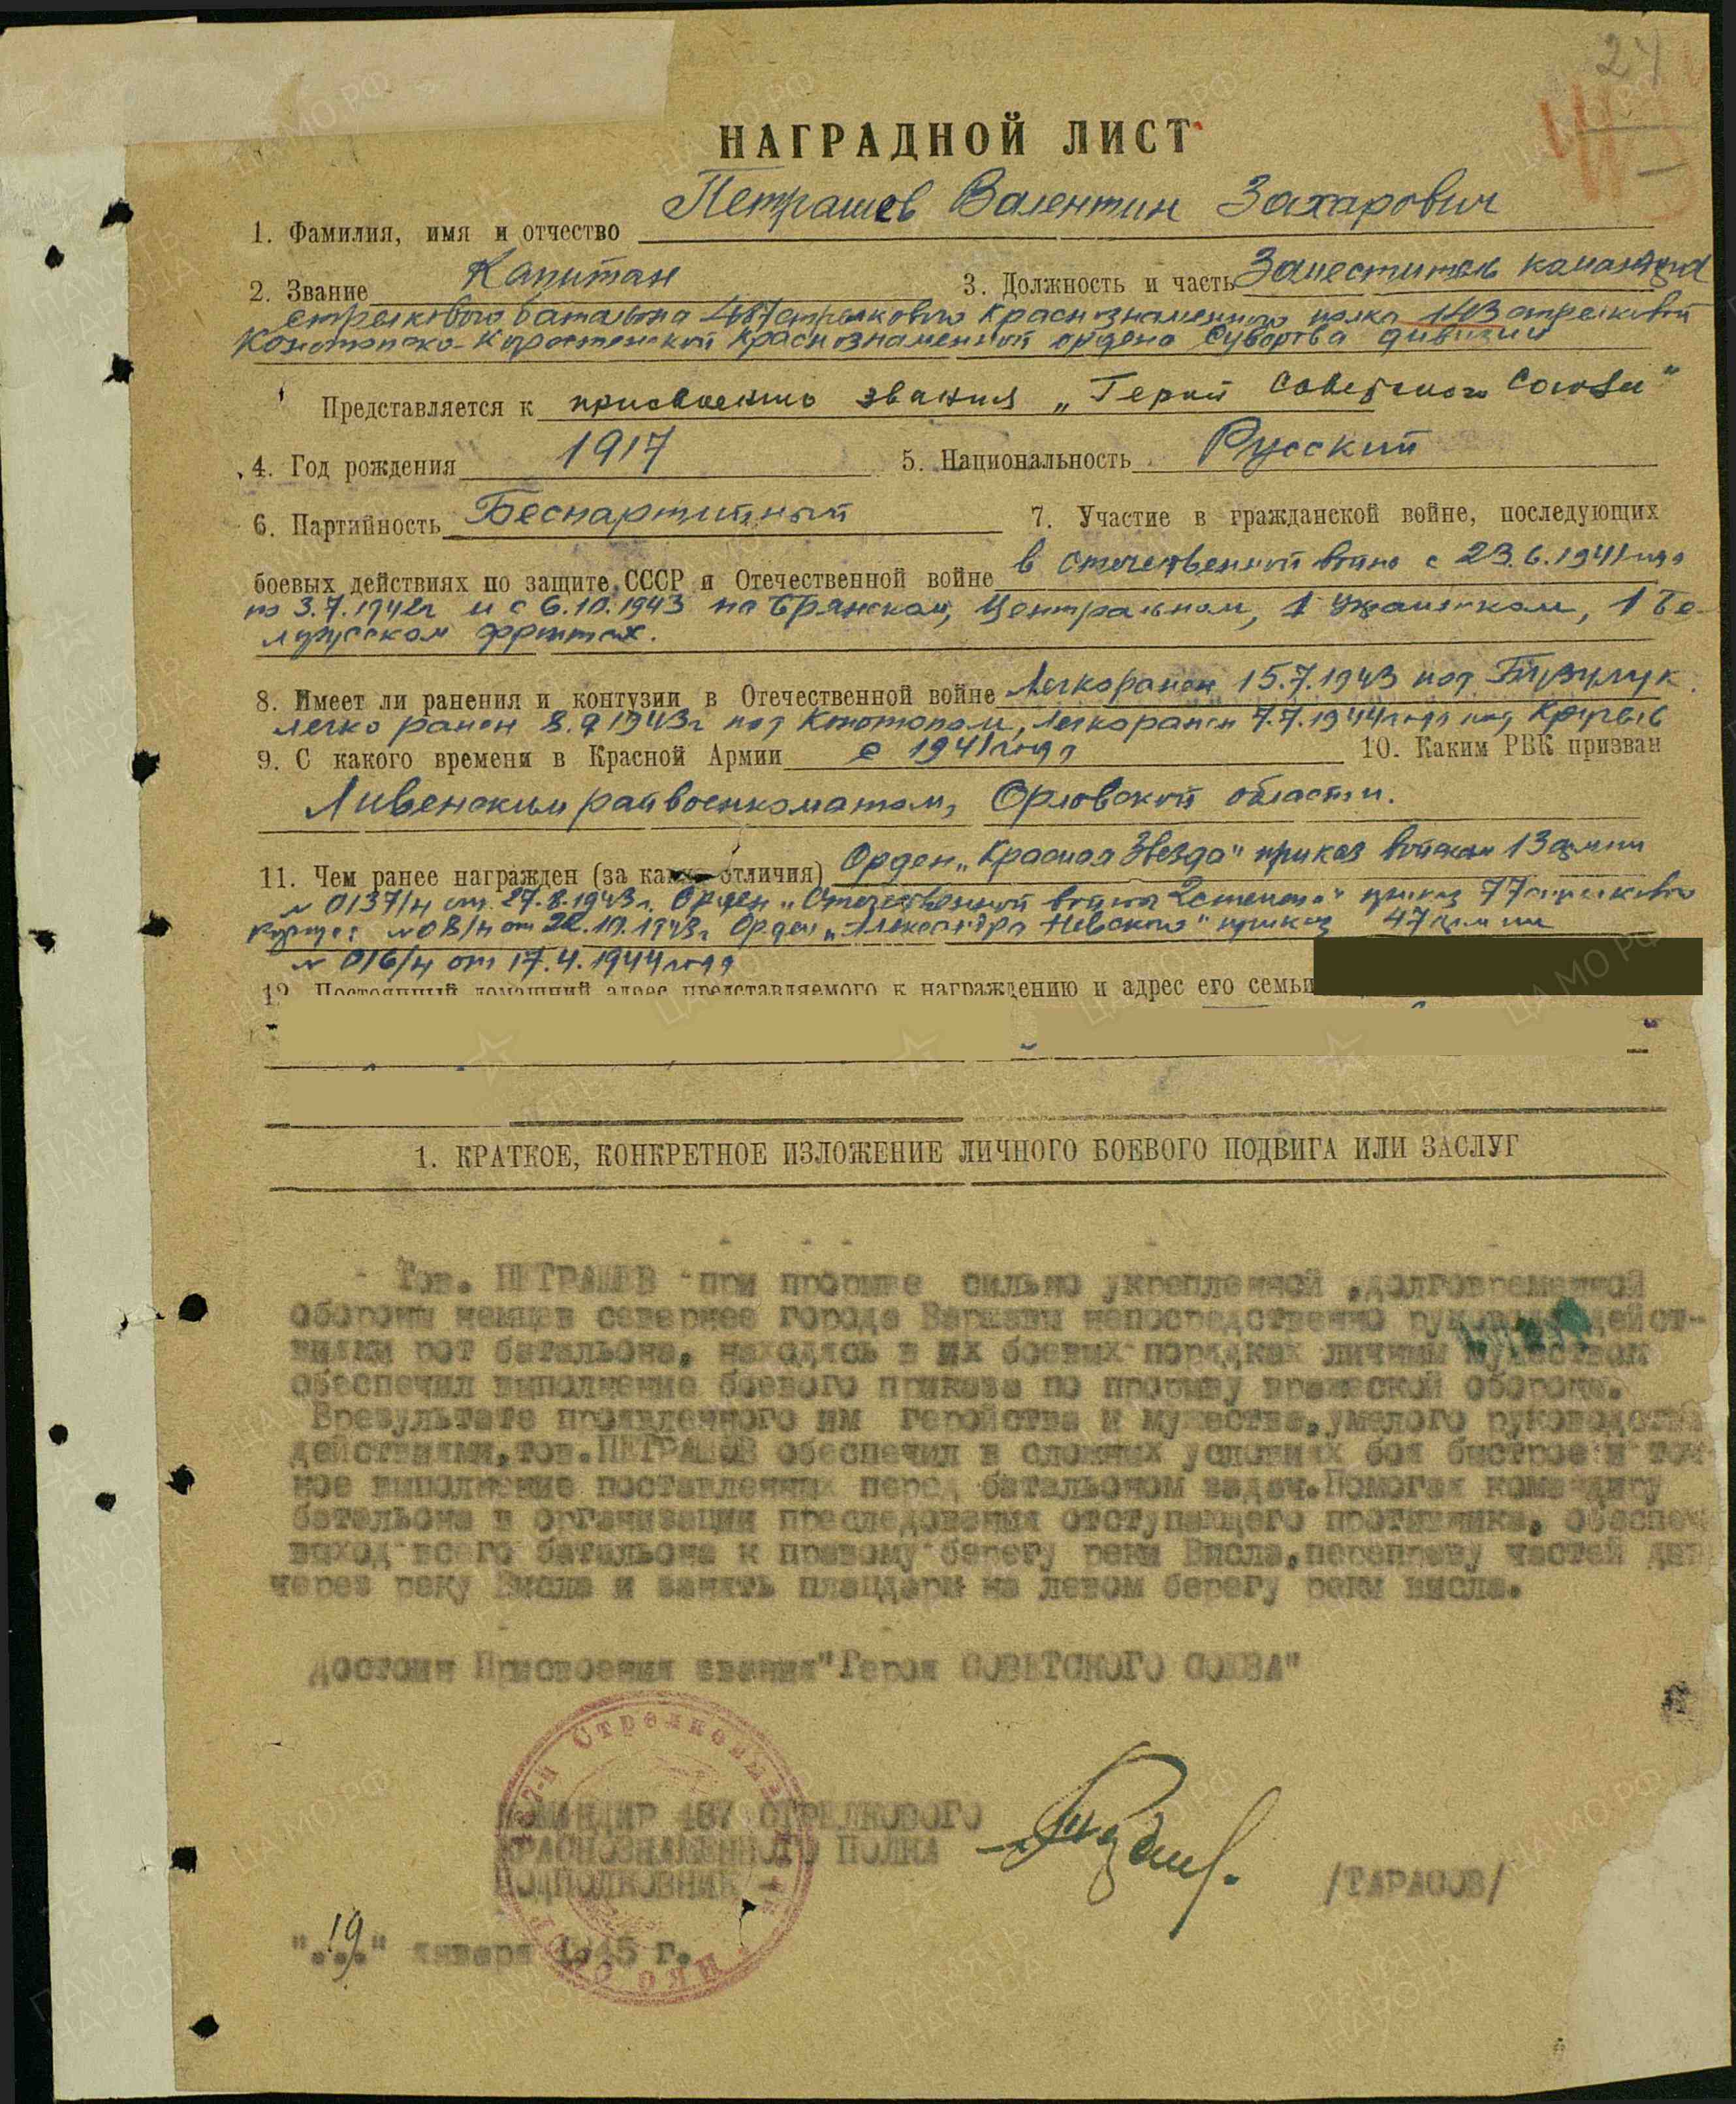 24
НАГРАДНОЙ ЛИСТ
1. Фамилия, имя и отчество Петрашев Валентин Захарович
2. Звание Капитан 3. Должность и часть Заместитель командира
стрелкового батальона 487 стрелкового Краснознаменного полка 143 стрелковой
Конотопско-Коростенской Краснознаменной ордена Суворова дивизии
Представляется к присвоению звания „Герой Советского Союза"
4. Год рождения 1917 5. Национальность Русский
6. Партийность Беспартийный 7. Участие в гражданской войне, последующих
боевых действиях по защите СССР и Отечественной войне в отечественной войне с 23.6.1941 года
по 3.7.1942г и с 6.10.1943 на Брянском, Центральном, 1 Украинском, 1 Бе-
лорусском фронтах.
8. Имеет ли ранения и контузии в Отечественной войне Легко ранен 15.7.1943 под Бузулук.
легко ранен 8.9.1943г под Конотопом, легко ранен 7.7.1944 года под
9. С какого времени в Красной Армии с 1941 года 10. Каким РВК призван
Ливенским райвоенкоматом, Орловской области.
11. Чем ранее награжден (за какие отличия) Орден „Красная Звезда" приказ войскам 13 армии
№ 0137/н от 27.8.1943г. Орден „Отечественной война 2 степени" приказ 77 стрелкового
корпуса №08/н от 22.10.1943г Орден „Александра Невского" приказ 47 армии
№ 016/н от 17.4.1944 года
12. Постоянный домашний адрес представляемого к награждению и адрес его семьи
1. КРАТКОЕ, КОНКРЕТНОЕ ИЗЛОЖЕНИЕ ЛИЧНОГО БОЕВОГО ПОДВИГА ИЛИ ЗАСЛУГ
Тов. ПЕТРАШЕВ при прорыве сильно укрепленной ,долговременной
обороны немцев севернее города Варшавы непосредственно руководил дейст-
виями рот батальона, находясь в их боевых порядках личным мужеством
обеспечил выполнение боевого приказа по прорыву вражеской обороны.
Врезультате проявленного им геройства и мужества,умелого руководства
действиями,тов.ПЕТРАШЕВ обеспечил в сложных условиях боя быстрое и точ-
ное выполнение поставленных перед батальоном задач.Помогая командиру
батальона в организации преследования отступающего противника, обеспеч
выход всего батальона к правому берегу реки Висла,переправу частей див
через реку Висла и занять плацдарм на левом берегу реки Висла.
Достоин Присвоения звания "Героя СОВЕТСКОГО СОЮЗА"
487-й Стрелковый НКО СССР
КОМАНДИР 487 СТРЕЛКОВОГО
КРАСНОЗНАМЕННОГО ПОЛКА
ПОДПОЛКОВНИК - /ТАРАСОВ/
"19" января 1945 г.
ЦА МО РФ
ПАМЯТЬ НАРОДА